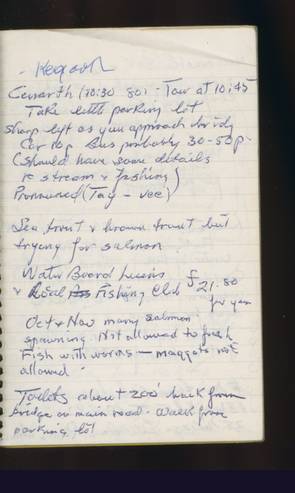 Cenarth (10:30 80) - Tour at 10:45
Take little parking lot
sharp left as you approach bridge
Car top Bus probably 30-50p.
(Should have some details
re stream & fishing)
Pronounced (Tay - vee)
Sea trout & brown trout but
trying for salmon
Water Board Licens
& Local Fishing Club £21.80
for year
Oct & Nov many salmon
spawning Not allowed to
Fish with worms - maggots not
allowed.
Toilets about 200' back from
bridge on main road - Walk from
parking lot